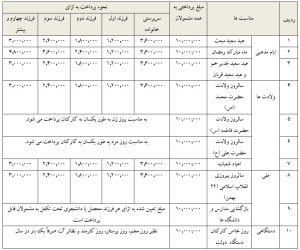 ردیف
مناسبت ها
مبلغ پرداختی به همه مشمولان
نحوه پرداخت به ازای
سرپرستی خانواده
فرزند اول
فرزند دوم
فرزند سوم
فرزند چهارم و بیشتر
ایام مذهبی
۱ عید سعید مبعث ۱۰,۰۰۰,۰۰۰ ۳,۶۰۰,۰۰۰ ۱,۲۰۰,۰۰۰ ۱,۸۰۰,۰۰۰ ۲,۴۰۰,۰۰۰ ۳,۰۰۰,۰۰۰
۲ ماه مبارک رمضان ۱۰,۰۰۰,۰۰۰
۳ عید سعید غدیر خم و عید سعید قربان ۱۰,۰۰۰,۰۰۰ ۳,۶۰۰,۰۰۰ ۱,۲۰۰,۰۰۰ ۱,۸۰۰,۰۰۰ ۲,۴۰۰,۰۰۰ ۳,۰۰۰,۰۰۰
ولادت ها
۴ سالروز ولادت حضرت محمد (ص) ۱۰,۰۰۰,۰۰۰ ۳,۶۰۰,۰۰۰ ۱,۲۰۰,۰۰۰ ۱,۸۰۰,۰۰۰ ۲,۴۰۰,۰۰۰ ۳,۰۰۰,۰۰۰
۵ سالروز ولادت حضرت فاطمه (س) ۱۰,۰۰۰,۰۰۰ به مناسبت روز زن به طور یکسان به کارکنان پرداخت می شود.
۶ سالروز ولادت حضرت علی (ع) ۱۰,۰۰۰,۰۰۰ به مناسبت روز مرد به طور یکسان به کارکنان پرداخت می شود.
ملی
۷ اعیاد شعبانیه ۱۰,۰۰۰,۰۰۰ ۳,۶۰۰,۰۰۰ ۱,۲۰۰,۰۰۰ ۱,۸۰۰,۰۰۰ ۲,۴۰۰,۰۰۰ ۳,۰۰۰,۰۰۰
۸ سالروز پیروزی انقلاب اسلامی (۲۲ بهمن) ۱۰,۰۰۰,۰۰۰ ۳,۶۰۰,۰۰۰ ۱,۲۰۰,۰۰۰ ۱,۸۰۰,۰۰۰ ۲,۴۰۰,۰۰۰ ۳,۰۰۰,۰۰۰
۹ بازگشایی مدارس و دانشگاه ها ۱۰,۰۰۰,۰۰۰ مبلغ تعیین شده به ازای هر فرزند محصل یا دانشجوی تحت تکفل به مشمولان قابل پرداخت است.
دستگاهی
۱۰ روز خاص کارکنان دستگاه دولت ۱۰,۰۰۰,۰۰۰ نظیر روز معلم، روز پرستار، روز کارمند و نظائر آن، صرفاً یک بار در سال